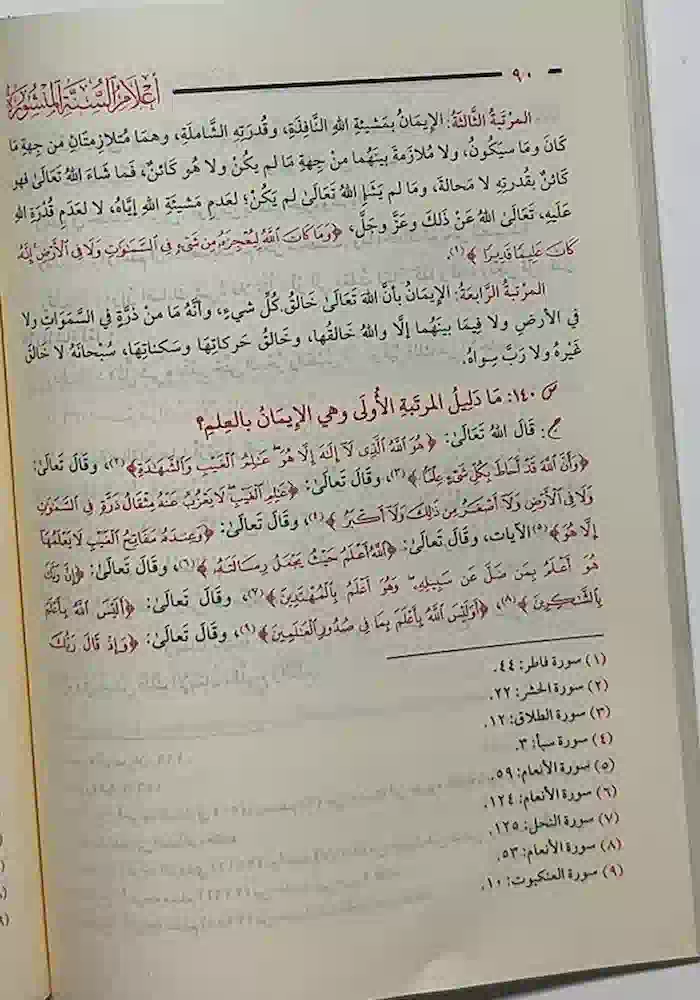 ٩٠
أعلام السنة المنشورة
المرتبة الثالثة: الإيمانُ بمَشيئةِ اللهِ النَّافِذَةِ، وقُدرَتِهِ الشَّاملَةِ، وهمَا مُتلازمتَانِ من جِهةِ مَا
كَانَ ومَا سيَكُونُ، ولا مُلازمَةَ بينَهُما منْ جِهةِ مَا لم يكُنْ ولا هُو كائنٌ، فَما شَاءَ اللهُ تَعَالَىٰ فهو
كَائنٌ بقُدرتِهِ لا مَحالةَ، ومَا لم يَشَإِ اللهُ تَعَالَىٰ لم يَكُنْ؛ لعَدمِ مَشيئةِ اللهِ إيَّاهُ، لا لعَدَمِ قُدْرَةِ اللهِ
عَلَيهِ، تَعَالَىٰ اللهُ عَنْ ذَلكَ وعَزَّ وجَلَّ، ﴿وَمَا كَانَ ٱللَّهُ لِيُعْجِزَهُۥ مِن شَىْءٍ فِى ٱلسَّمَٰوَٰتِ وَلَا فِى ٱلْأَرْضِ ۚ إِنَّهُۥ
كَانَ عَلِيمًا قَدِيرًا﴾(١).
المرْتبةُ الرَّابعَةُ: الإيمَانُ بأنَّ اللهَ تَعَالَىٰ خَالقُ كُلِّ شيءٍ، وأنَّهُ مَا منْ ذرَّةٍ في السَّمَوَاتِ ولا
في الأرضِ ولا فِيمَا بينَهُما إلَّا واللهُ خَالقُها، وخَالقُ حَركاتِهَا وسَكناتِهَا، سُبْحانَهُ لا خَالقَ
غَيْرُهُ ولا رَبَّ سِواهُ.
س ١٤٠: مَا دَلِيلُ المرتَبةِ الأُولَى وهي الإيمَانُ بالعِلمِ؟
ج: قَالَ اللهُ تَعَالَىٰ: ﴿هُوَ ٱللَّهُ ٱلَّذِى لَآ إِلَٰهَ إِلَّا هُوَ ۖ عَٰلِمُ ٱلْغَيْبِ وَٱلشَّهَٰدَةِ﴾(٢)، وقَالَ تَعَالَىٰ:
﴿وَأَنَّ ٱللَّهَ قَدْ أَحَاطَ بِكُلِّ شَىْءٍ عِلْمًۢا﴾(٣)، وقَالَ تَعَالَىٰ: ﴿عَٰلِمِ ٱلْغَيْبِ ۖ لَا يَعْزُبُ عَنْهُ مِثْقَالُ ذَرَّةٍ فِى ٱلسَّمَٰوَٰتِ
وَلَا فِى ٱلْأَرْضِ وَلَآ أَصْغَرُ مِن ذَٰلِكَ وَلَآ أَكْبَرُ﴾(٤)، وقَالَ تَعَالَىٰ: ﴿وَعِندَهُۥ مَفَاتِحُ ٱلْغَيْبِ لَا يَعْلَمُهَآ
إِلَّا هُوَ﴾(٥) الآيات، وقَالَ تَعَالَىٰ: ﴿ٱللَّهُ أَعْلَمُ حَيْثُ يَجْعَلُ رِسَالَتَهُۥ﴾(٦)، وقَالَ تَعَالَىٰ: ﴿إِنَّ رَبَّكَ
هُوَ أَعْلَمُ بِمَن ضَلَّ عَن سَبِيلِهِۦ ۖ وَهُوَ أَعْلَمُ بِٱلْمُهْتَدِينَ﴾(٧)، وقَالَ تَعَالَىٰ: ﴿أَلَيْسَ ٱللَّهُ بِأَعْلَمَ
بِٱلشَّٰكِرِينَ﴾(٨)، ﴿أَوَلَيْسَ ٱللَّهُ بِأَعْلَمَ بِمَا فِى صُدُورِ ٱلْعَٰلَمِينَ﴾(٩)، وقَالَ تَعَالَىٰ: ﴿وَإِذْ قَالَ رَبُّكَ
(١) سورة فاطر: ٤٤.
(٢) سورة الحشر: ٢٢.
(٣) سورة الطلاق: ١٢.
(٤) سورة سبأ: ٣.
(٥) سورة الأنعام: ٥٩.
(٦) سورة الأنعام: ١٢٤.
(٧) سورة النحل: ١٢٥.
(٨) سورة الأنعام: ٥٣.
(٩) سورة العنكبوت: ١٠.